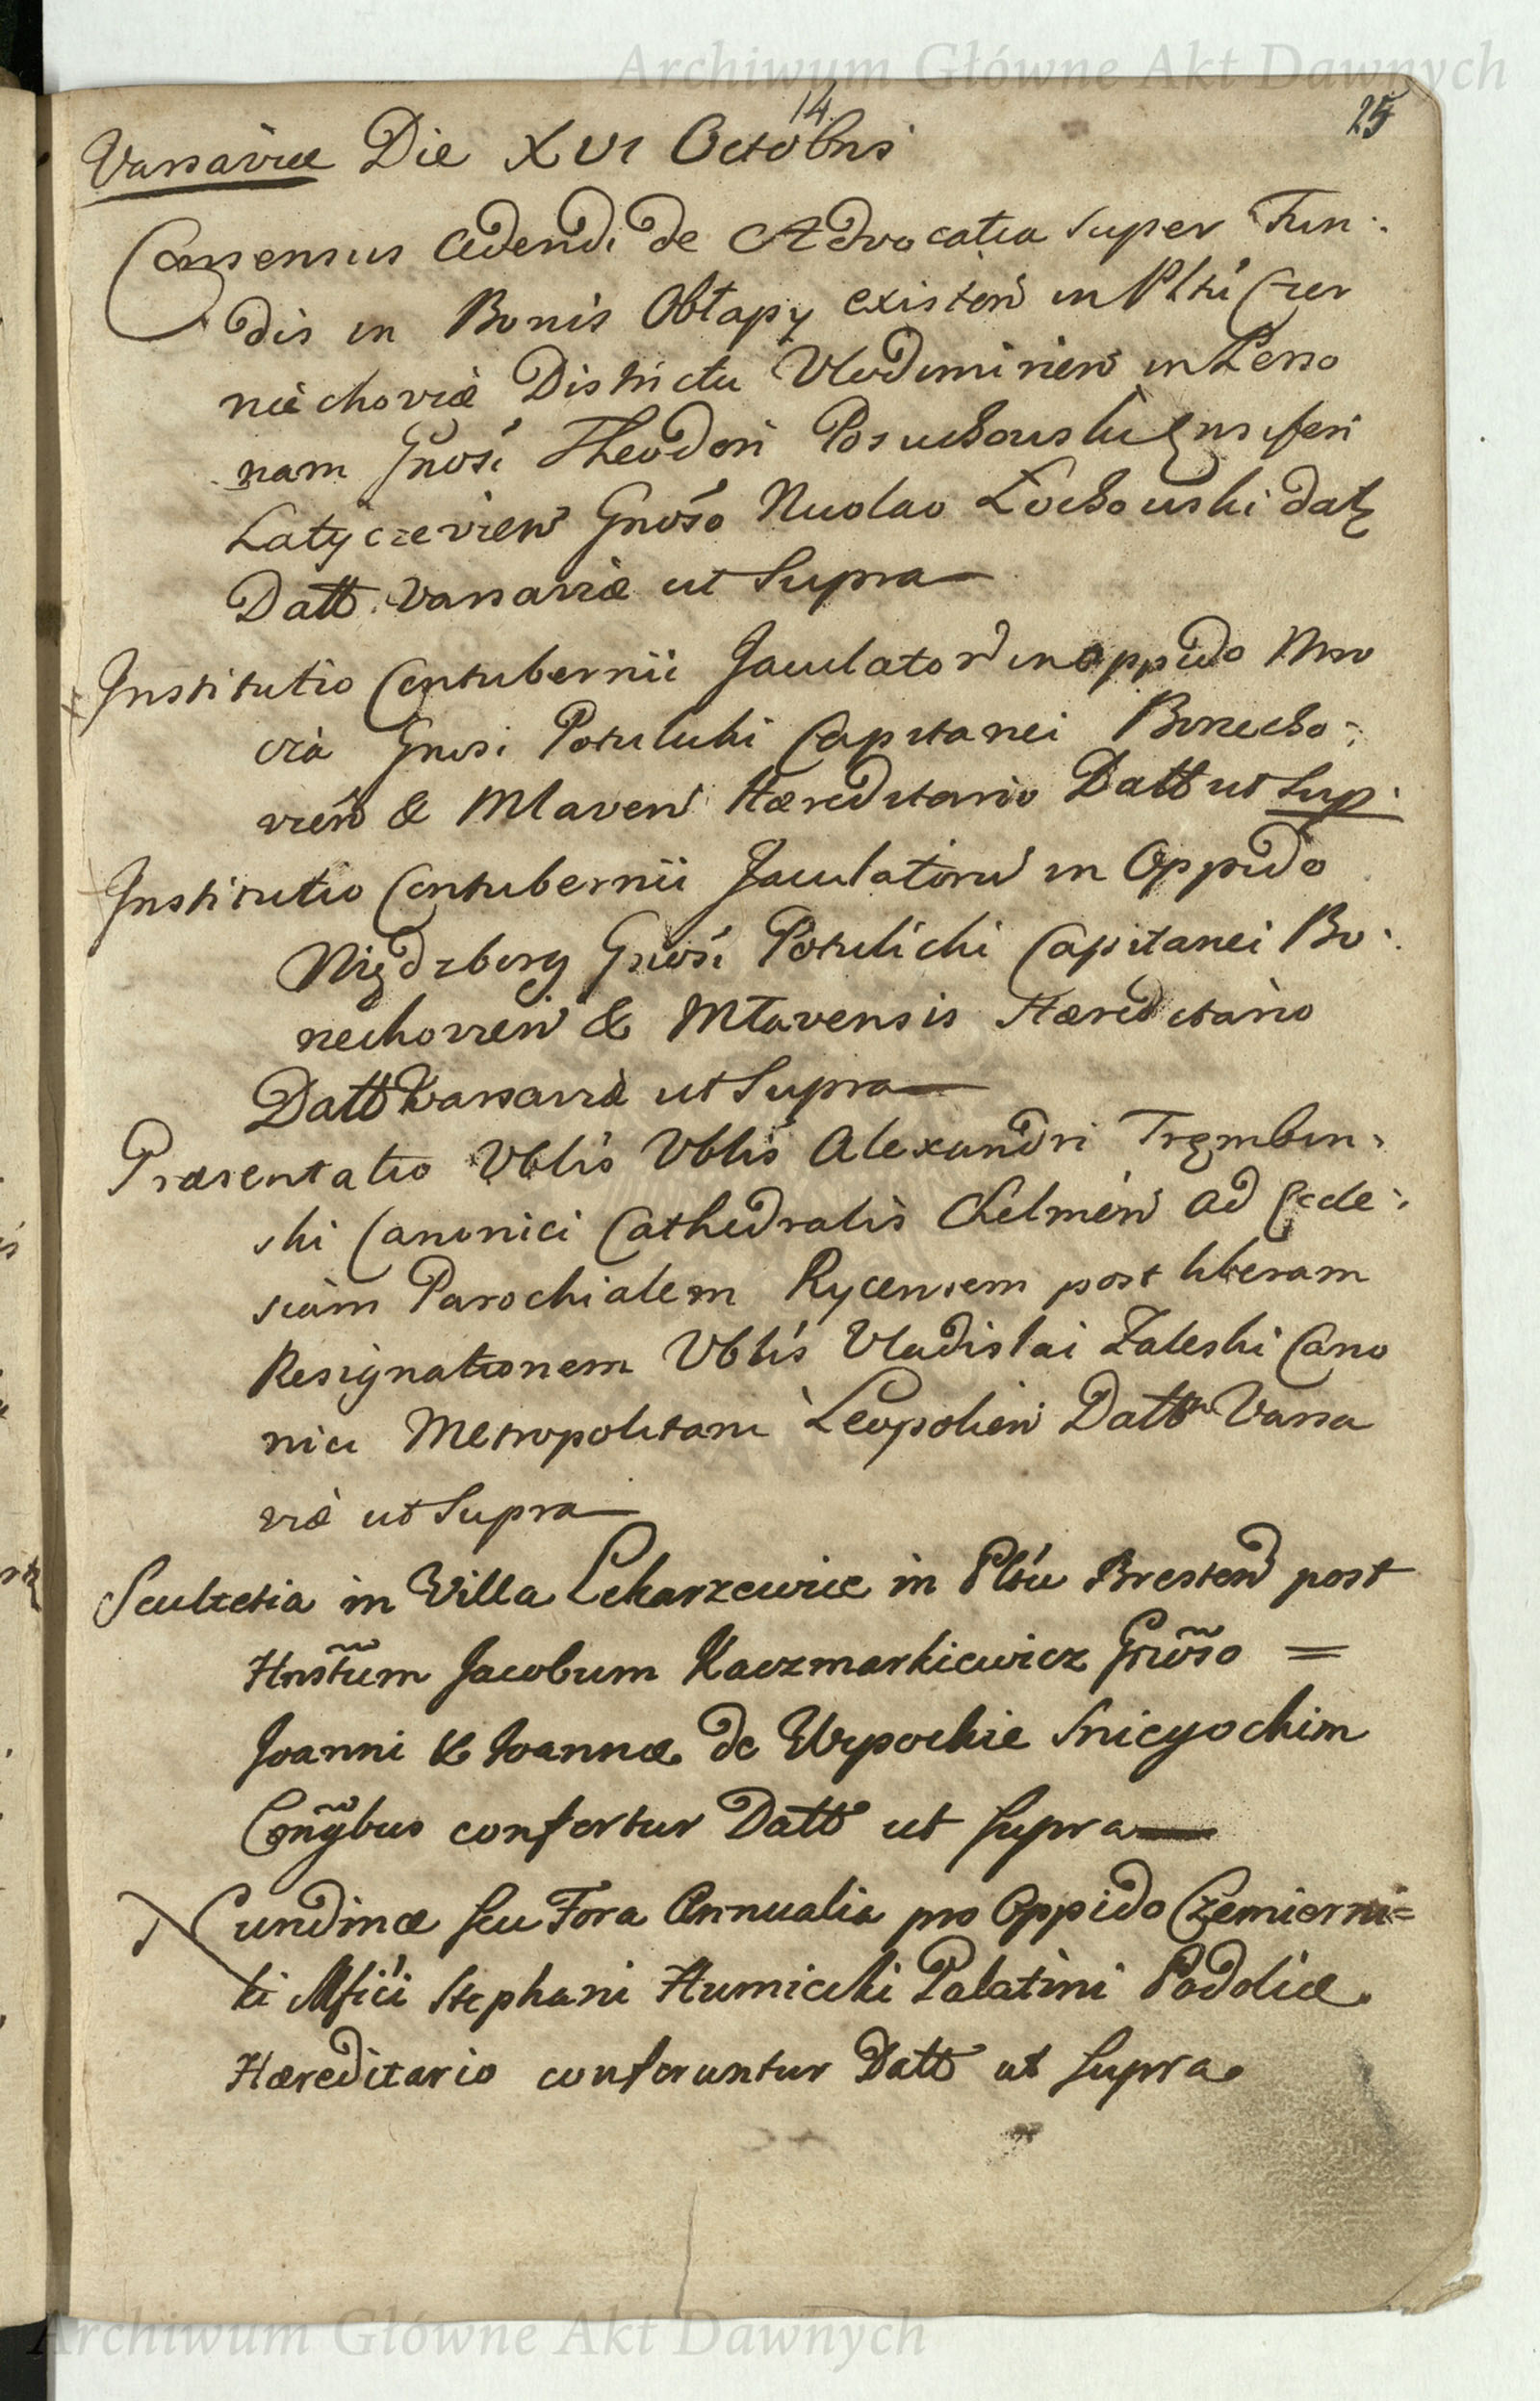 Archiwum Główne Akt Dawnych
14.
25
Varsaviæ Die XVI Octobris
Consensus cedendi de Advocatia super Fun:
dis in Bonis Obłapy existeñ in Pltû Czer
niechoviæ Districtu Vlodimirien in Perso
nam Gnosi Theodori Ensiferi
Latyczevien Gnoso Nicolao Łochowski datq
Datt. Varsaviæ ut Supra
Institutio Contubernii Jaculatorū in oppido Mro
cza Gnosi Potulicki Capitanei Borzecho:
vień & Mlaven Hæreditario Datt ut Sup:
Institutio Contubernii Jaculatorū in Oppido
Więdzborg Gnosi Potulicki Capitanei Bo:
rzechovień & Mławensis Hæreditario
Datt Varsaviæ ut Supra
Præsentatio Vblis Vblis Alexandri Trębin:
ski Canonici Cathedralis Chelmeń ad Eccle:
siam Parochialem Rycensem post liberam
Resignationem Vblis Vladislai Zaleski Cano
nici Metropolitani Leopolień Datt Varsa
viæ ut Supra
Scultetia in Villa Lekarzewice in Pltû Bresteñ post
Hnstum Jacobum Kaczmarkiewicz Gnoso =
Joanni & Joannæ de Wypockie Snicgochim
Conygbus confertur Datt ut supra
Nundinæ seu Fora Annualia pro Oppido Czemierni=
ki Mfici Stephani Humiecki Palatini Podoliæ
Hæreditario conferuntur Datt ut supra
Archiwum Główne Akt Dawnych